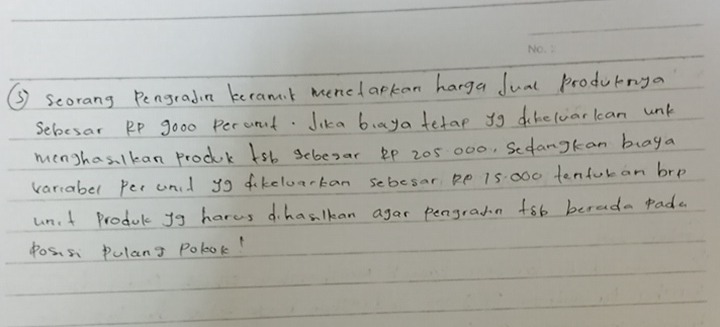 No. :
(5) Seorang Pengrajin keramik menetapkan harga Jual Produknya
Sebesar RP 9000 Per unit. Jika biaya tetap yg dikeluarkan unk
menghasilkan Produk tsb sebesar RP 205.000. Sedangkan biaya
variabel Per unit yg dikeluarkan sebesar RP 15.000 tentukan brp
unit Produk yg harus dihasilkan agar pengrajin tsb berada pada
Posisi Pulang Pokok!